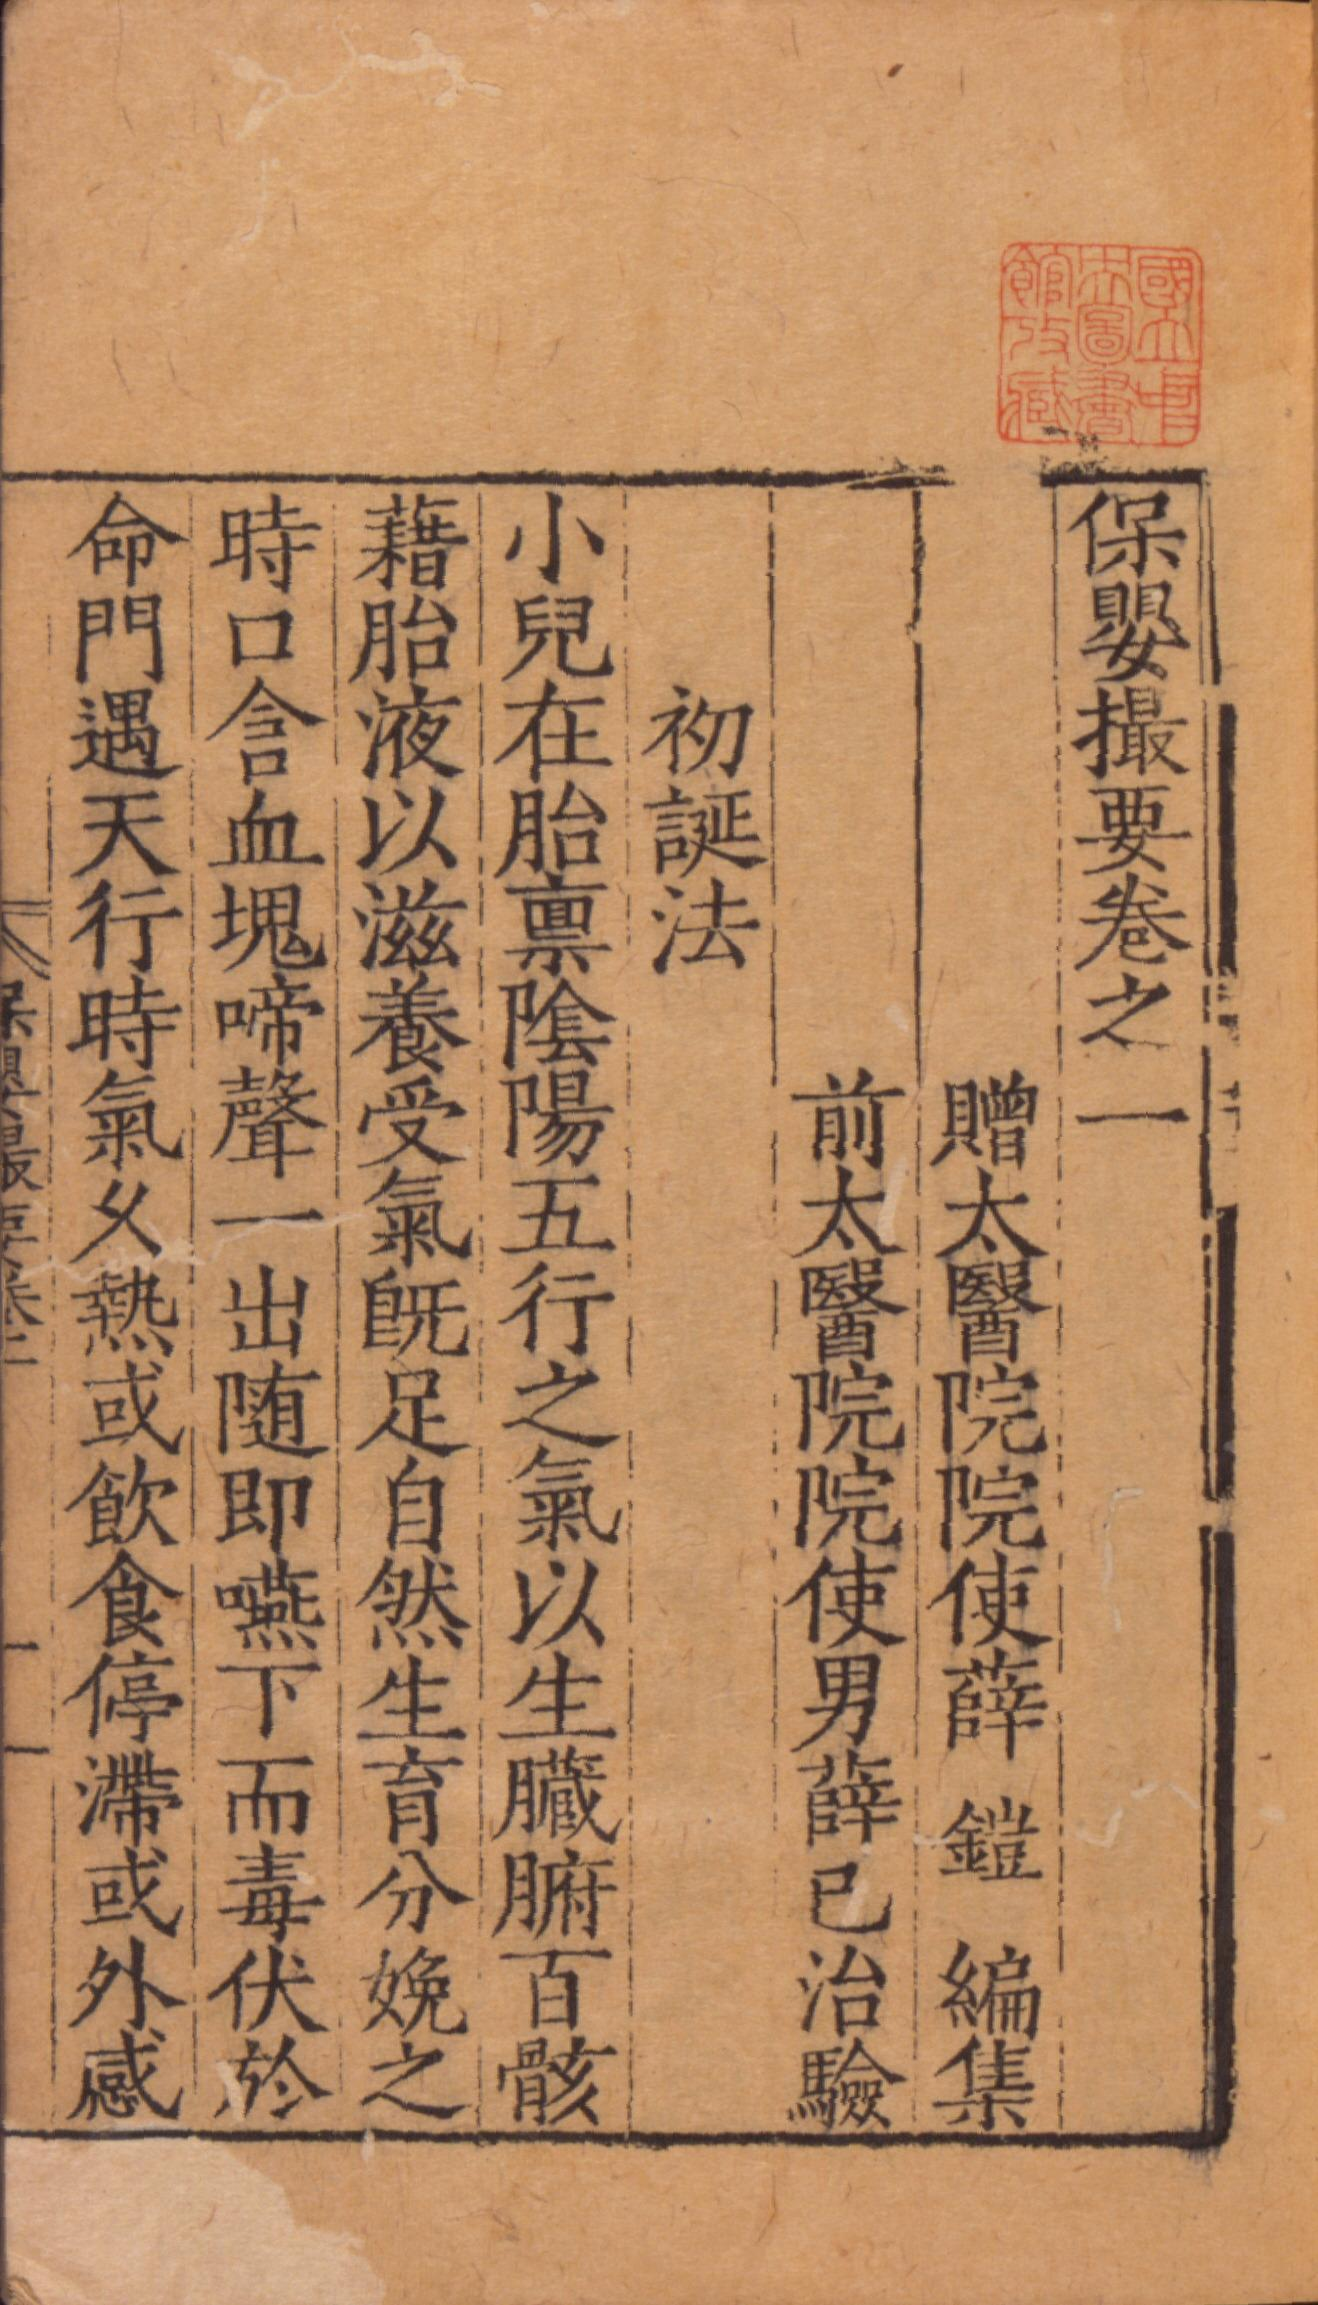 保嬰撮要卷之一
贈太醫院院使薛鎧編集
前太醫院院使男薛己治驗
初誕法
小兒在胎禀隂陽五行之氣以生臟腑百骸
藉胎液以滋養受氣旣足自然生育分娩之
時口含血塊啼聲一出随即嚥下而毒伏於
命門遇天行時氣乆熱或飲食停滯或外感
國立中
央圖書
館收藏
保嬰撮要卷一
一